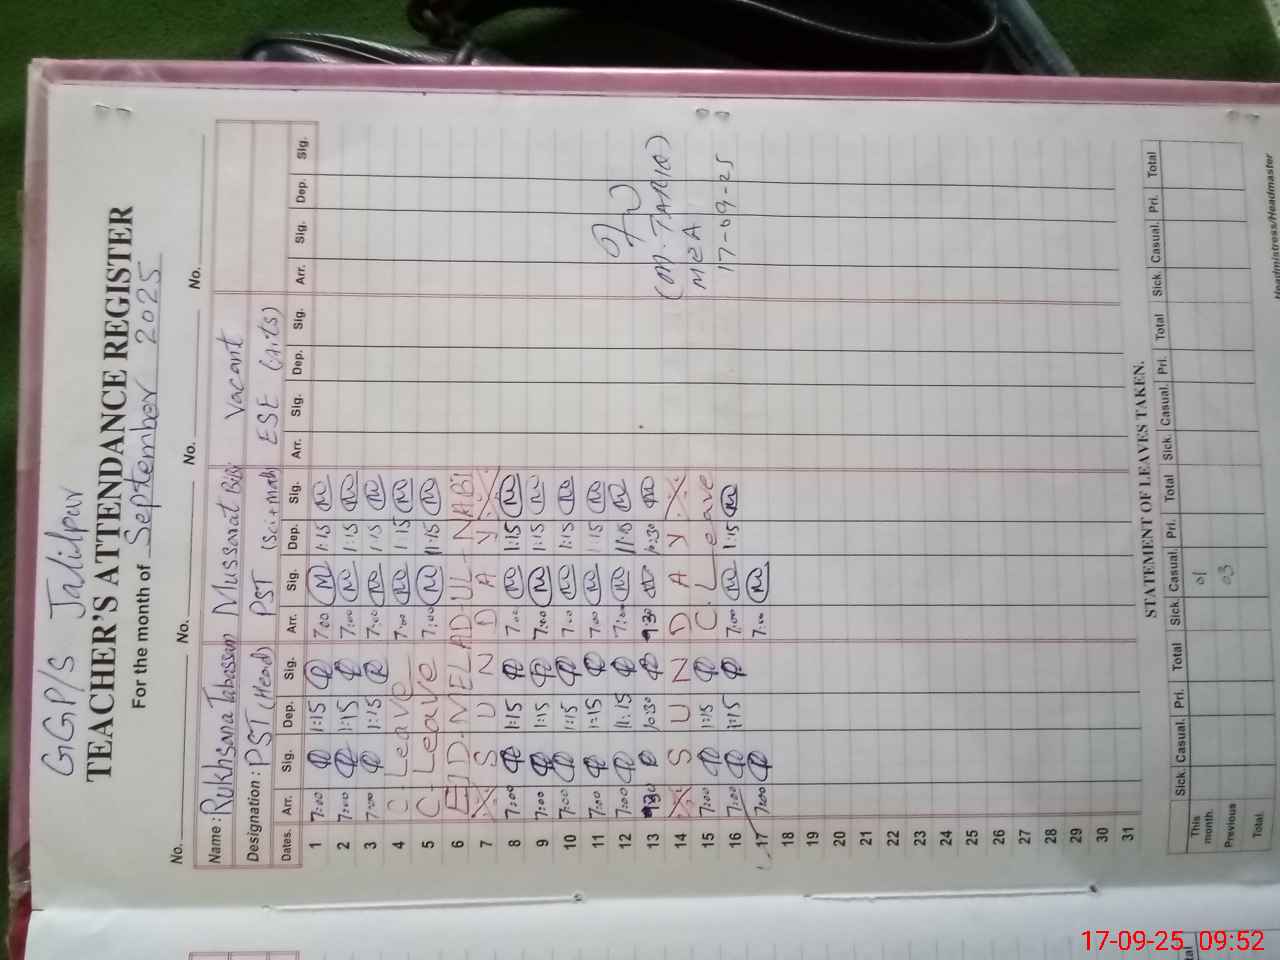 GGP/S Jalilpur
TEACHER'S ATTENDANCE REGISTER
For the month of September 2025
No. No. No. No.
Name: Rukhsana Tabassam Mussarat Bibi Vacant
Designation: PST (Head) PST (Sci+math) ESE (arts)
Dates. Arr. Sig. Dep. Sig. Arr. Sig. Dep. Sig. Arr. Sig. Dep. Sig. Arr. Sig. Dep. Sig.
1 7:00 1:15 7:00 1:15
2 7:00 1:15 7:00 1:15
3 7:00 1:15 7:00 1:15
4 C. Leave 7:00 1:15
5 C. Leave 7:00 1:15
6 EID-MELAD-UL-NABI
7 SUNDAY
8 7:00 1:15 7:00 1:15
9 7:00 1:15 7:00 1:15
10 7:00 1:15 7:00 1:15
11 7:00 1:15 7:00 1:15
12 7:00 11:15 7:00 11:15
13 9:30 10:30 9:30
14 SUNDAY
15 7:00 1:15 C. Leave
16 7:00 1:15 7:00 1:15
17 7:00 7:00
18
19
20
21
22
23
24
25
26
27
28
29
30
31
(M. TARIQ)
MEA
17-09-25
STATEMENT OF LEAVES TAKEN.
Sick. Casual. Pri. Total Sick. Casual. Pri. Total Sick. Casual. Pri. Total Sick. Casual. Pri. Total
This month. 01
Previous 03
Total
Headmistress/Headmaster
17-09-25 09:52